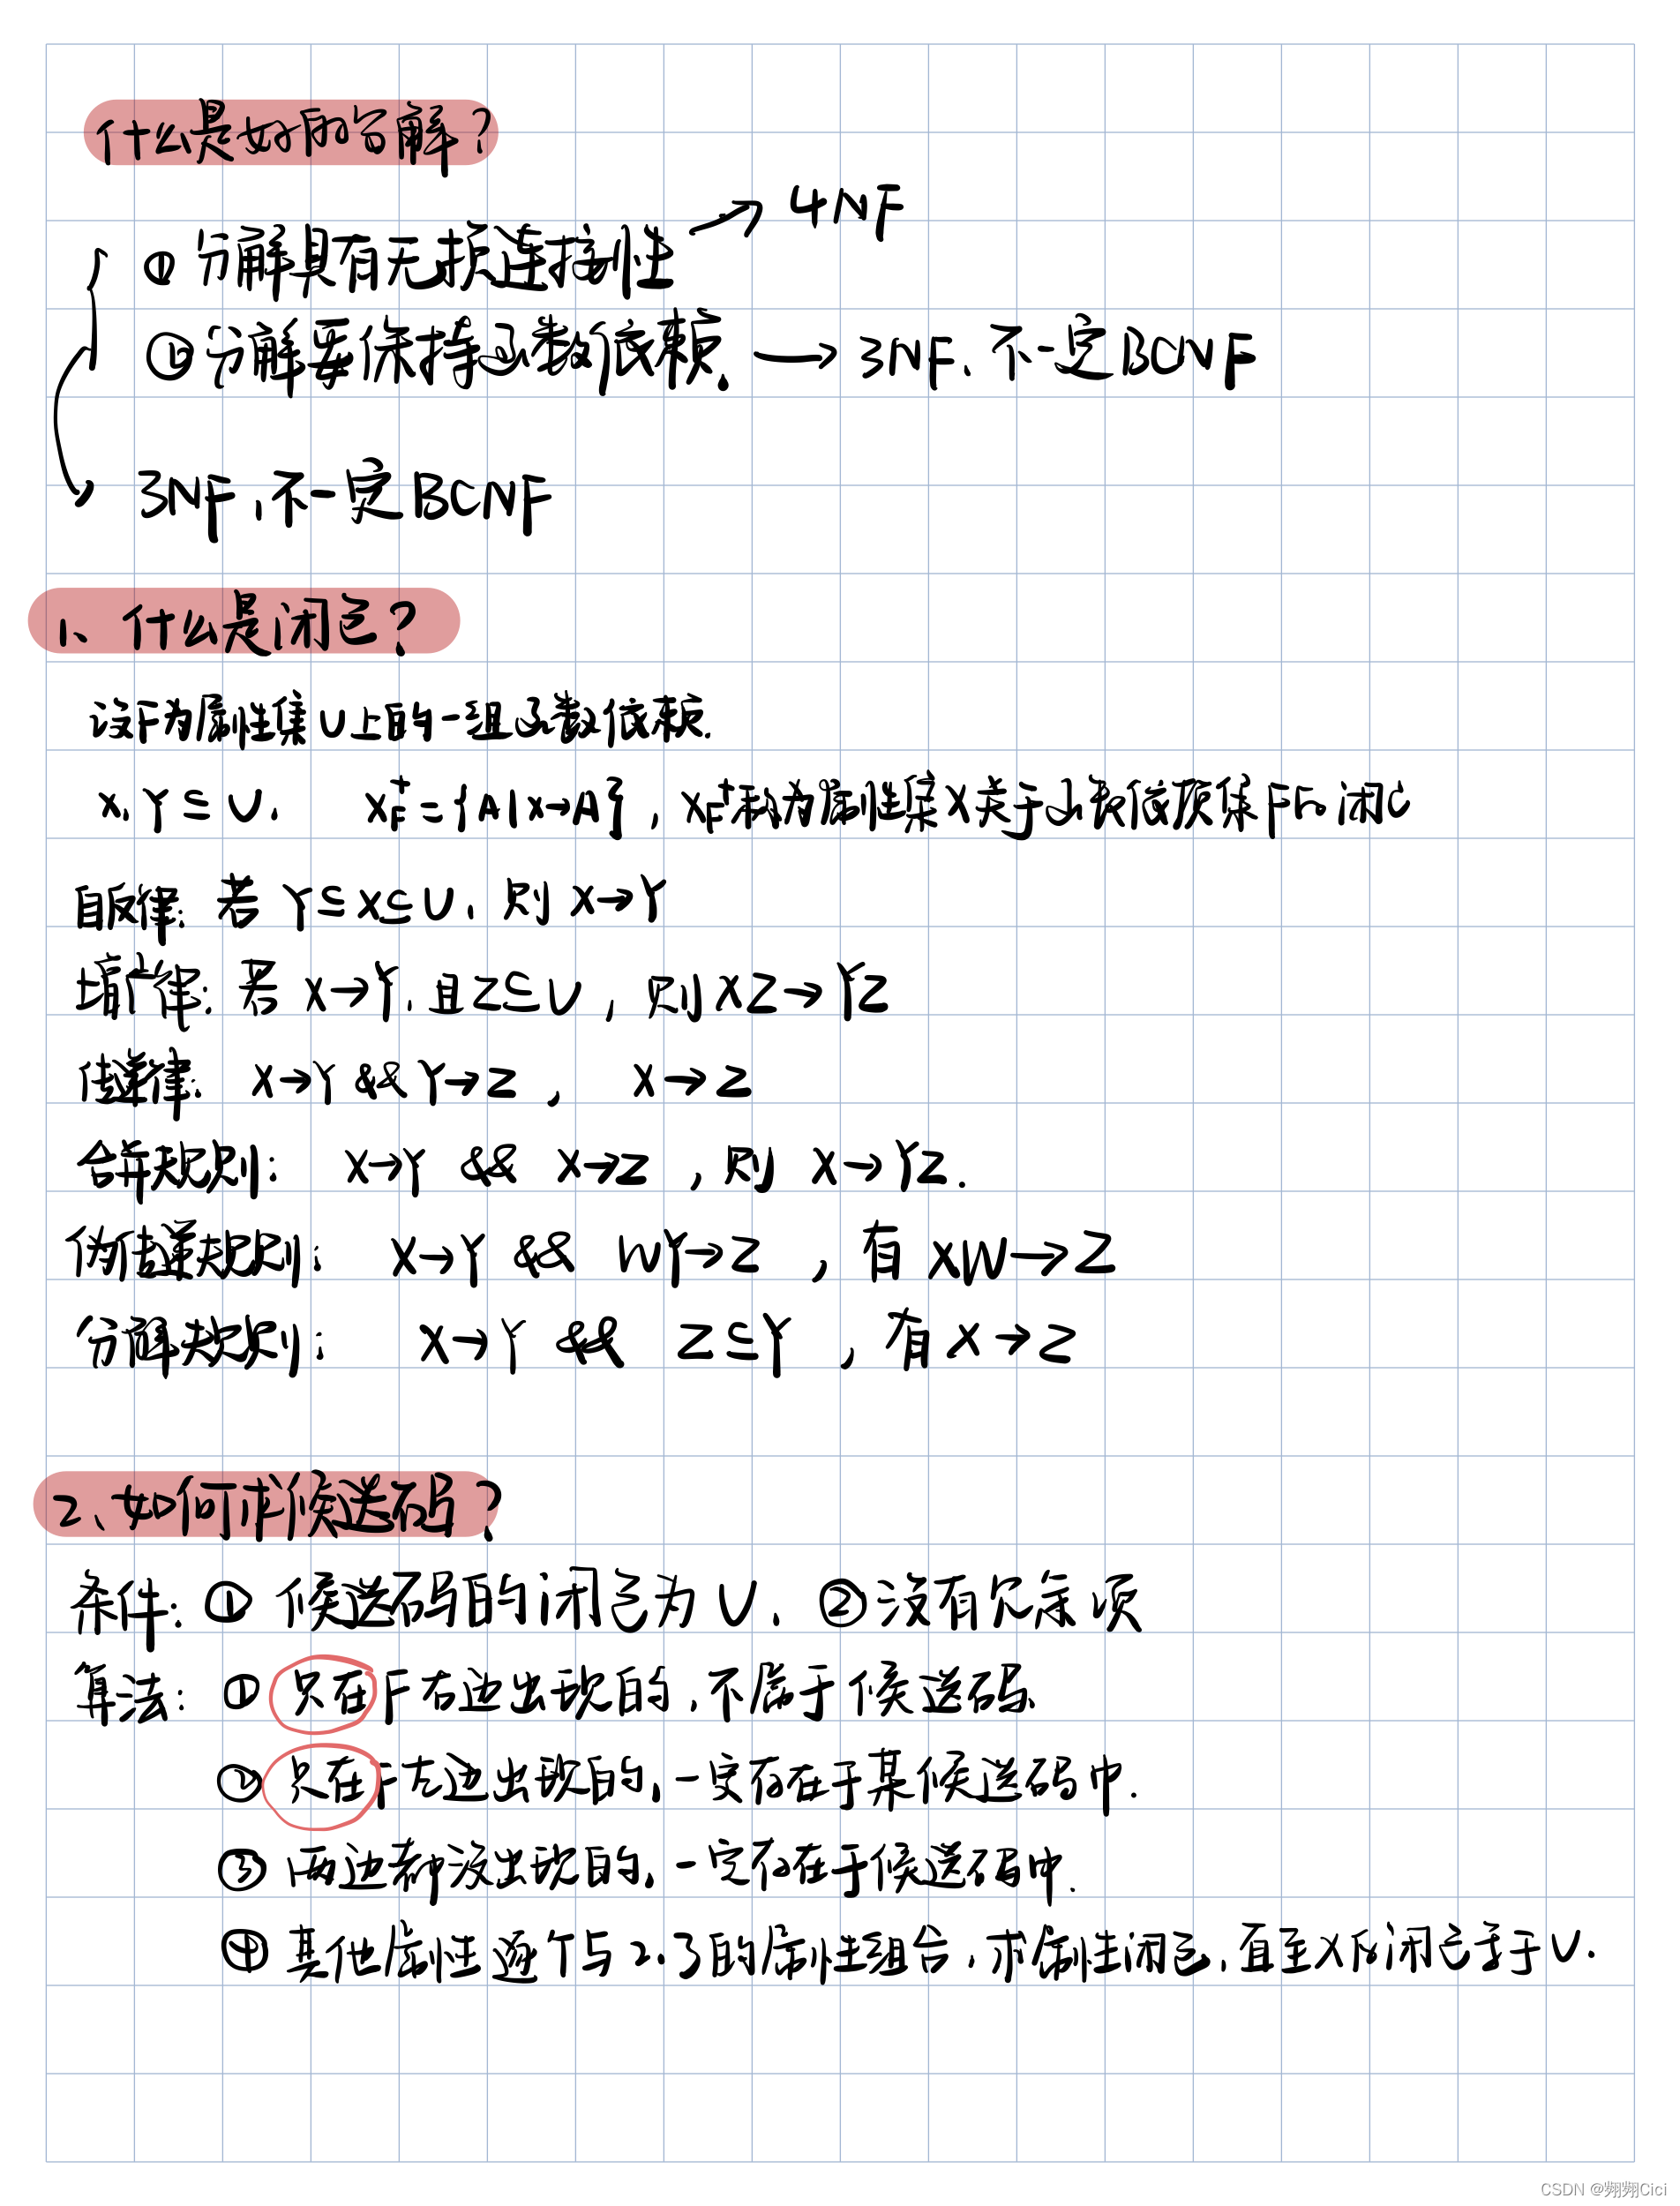 什么是好的分解？
① 分解具有无损连接性 → 4NF
② 分解要保持函数依赖. → 3NF、不一定BCNF
3NF, 不一定BCNF
1、什么是闭包？
设F为属性集U上的一组函数依赖.
X, Y ⊆ U, X_F^+ = {A | X→A}, X_F^+ 称为属性集X关于函数依赖集F的闭包
自反律: 若 Y ⊆ X ⊆ U, 则 X→Y
增广律: 若 X→Y, 且Z ⊆ U, 则 XZ→YZ
传递律: X→Y && Y→Z, X→Z
合并规则: X→Y && X→Z, 则 X→YZ.
伪传递规则: X→Y && WY→Z, 有 XW→Z
分解规则: X→Y && Z ⊆ Y, 有 X→Z
2、如何求候选码？
条件: ① 候选码的闭包为 U, ② 没有冗余项
算法: ① 只在F右边出现的, 不属于候选码.
② 只在F左边出现的, 一定存在于某候选码中.
③ 两边都没出现的, 一定存在于候选码中.
④ 其他属性逐个与 2.3的属性组合, 求属性闭包, 直至X的闭包等于U.
CSDN @翙翙Cici